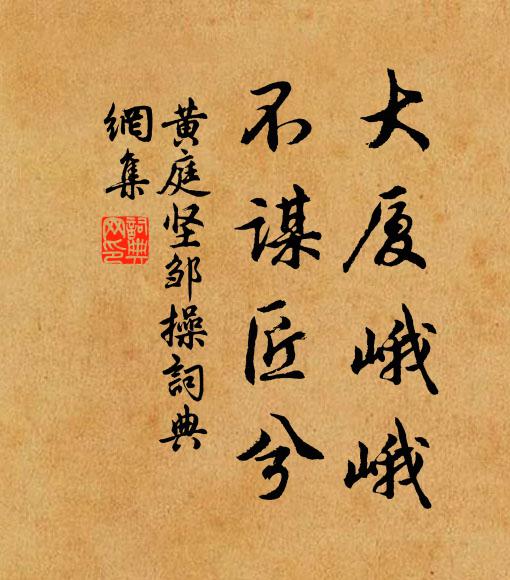 大厦峨峨
不谋匠兮
黄庭坚邹操詞典
網集
詞典
网印